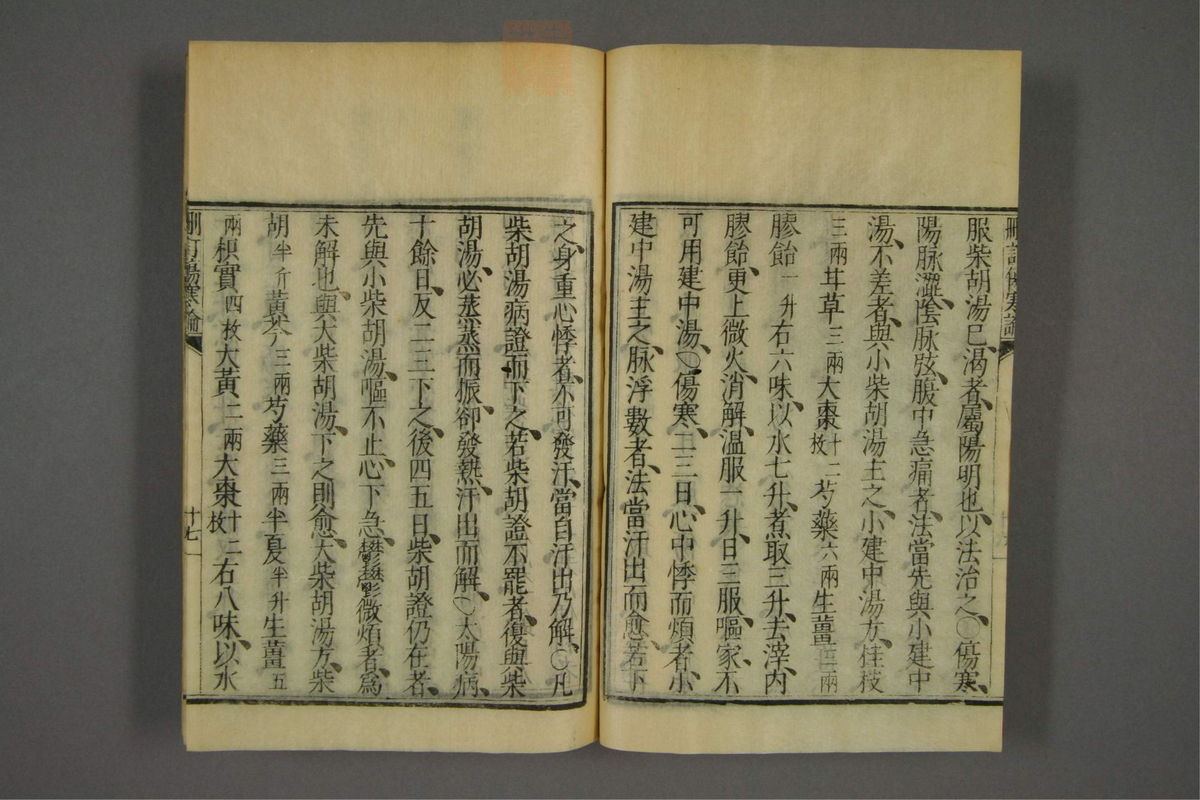 服柴胡湯巳渴者屬陽明也以法治之〇傷寒
陽脉澀陰脉弦腹中急痛者法當先與小建中
湯不差者與小柴胡湯主之小建中湯方桂枝
三兩甘草三兩大棗十二枚芍藥六兩生薑三兩
膠飴一升右六味以水七升煮取三升去滓内
膠飴更上微火消解温服一升日三服嘔家不
可用建中湯〇傷寒二三日心中悸而煩者小
建中湯主之脉浮數者法當汗出而愈若下
之身重心悸者不可發汗當自汗出乃解〇凡
柴胡湯病證而下之若柴胡證不罷者復與柴
胡湯必蒸蒸而振卻發熱汗出而解〇太陽病
十餘日反二三下之後四五日柴胡證仍在者
先與小柴胡湯嘔不止心下急鬱鬱微煩者為
未解也與大柴胡湯下之則愈大柴胡湯方柴
胡半斤黄芩三兩芍藥三兩半夏半升生薑五
兩枳實四枚大黄二兩大棗十二枚右八味以水
刪訂傷寒論
十七